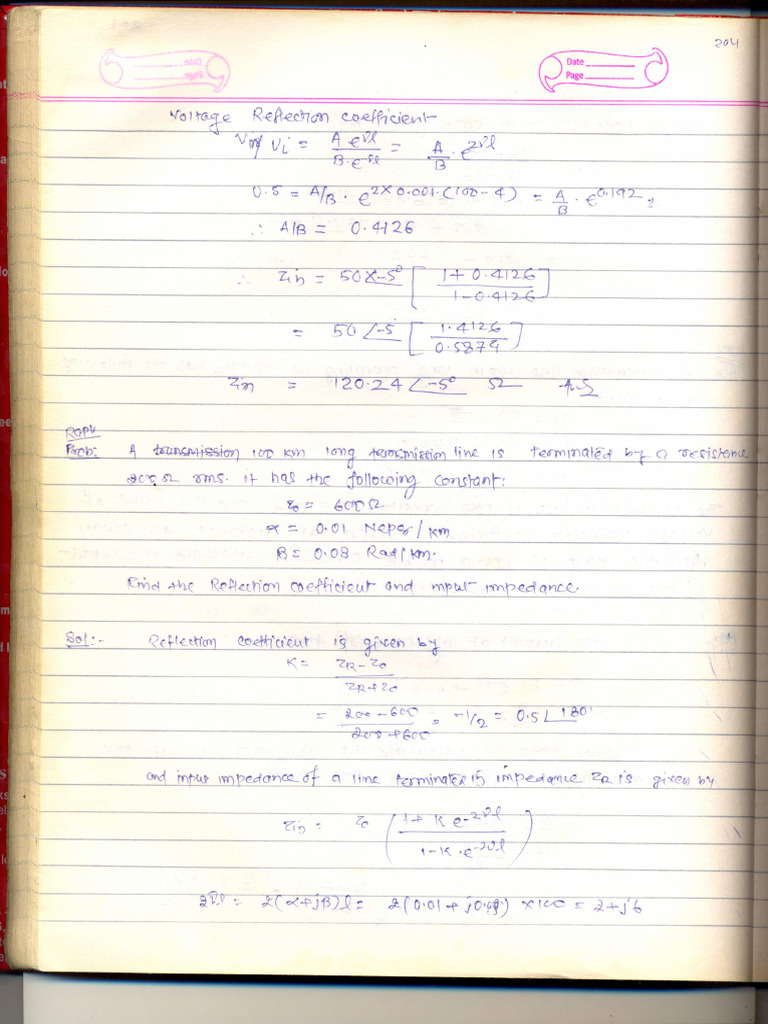 204
Date
Page
Voltage Reflection coefficient
Vr/Vi = A e^γl / B·e^-γl = A/B · e^2γl
0.5 = A/B · e^2×0.001·(100-4) = A/B · e^0.192
∴ A/B = 0.4126
∴ Zin = 50∠-5° [1+0.4126 / 1-0.4126]
= 50∠-5 [1.4126 / 0.5874]
Zin = 120.24∠-5° Ω Ans
RGPV
Prob: A transmission 100 km long transmission line is terminated by a resistance
200Ω rms. it has the following constant:
z0 = 600Ω
α = 0.01 Neper/km
β = 0.03 Rad/km.
Find the Reflection coefficient and input impedance.
Sol:- Reflection coefficient is given by
K = ZR-Z0 / ZR+Z0
= 200-600 / 200+600 = -1/2 = 0.5∠180°
and input impedance of a line terminated in impedance ZR is given by
Zin = Z0 (1+K e^-2γl / 1-K·e^-2γl)
2γl = 2(α+jβ)l = 2(0.01+j0.03) ×100 = 2+j6